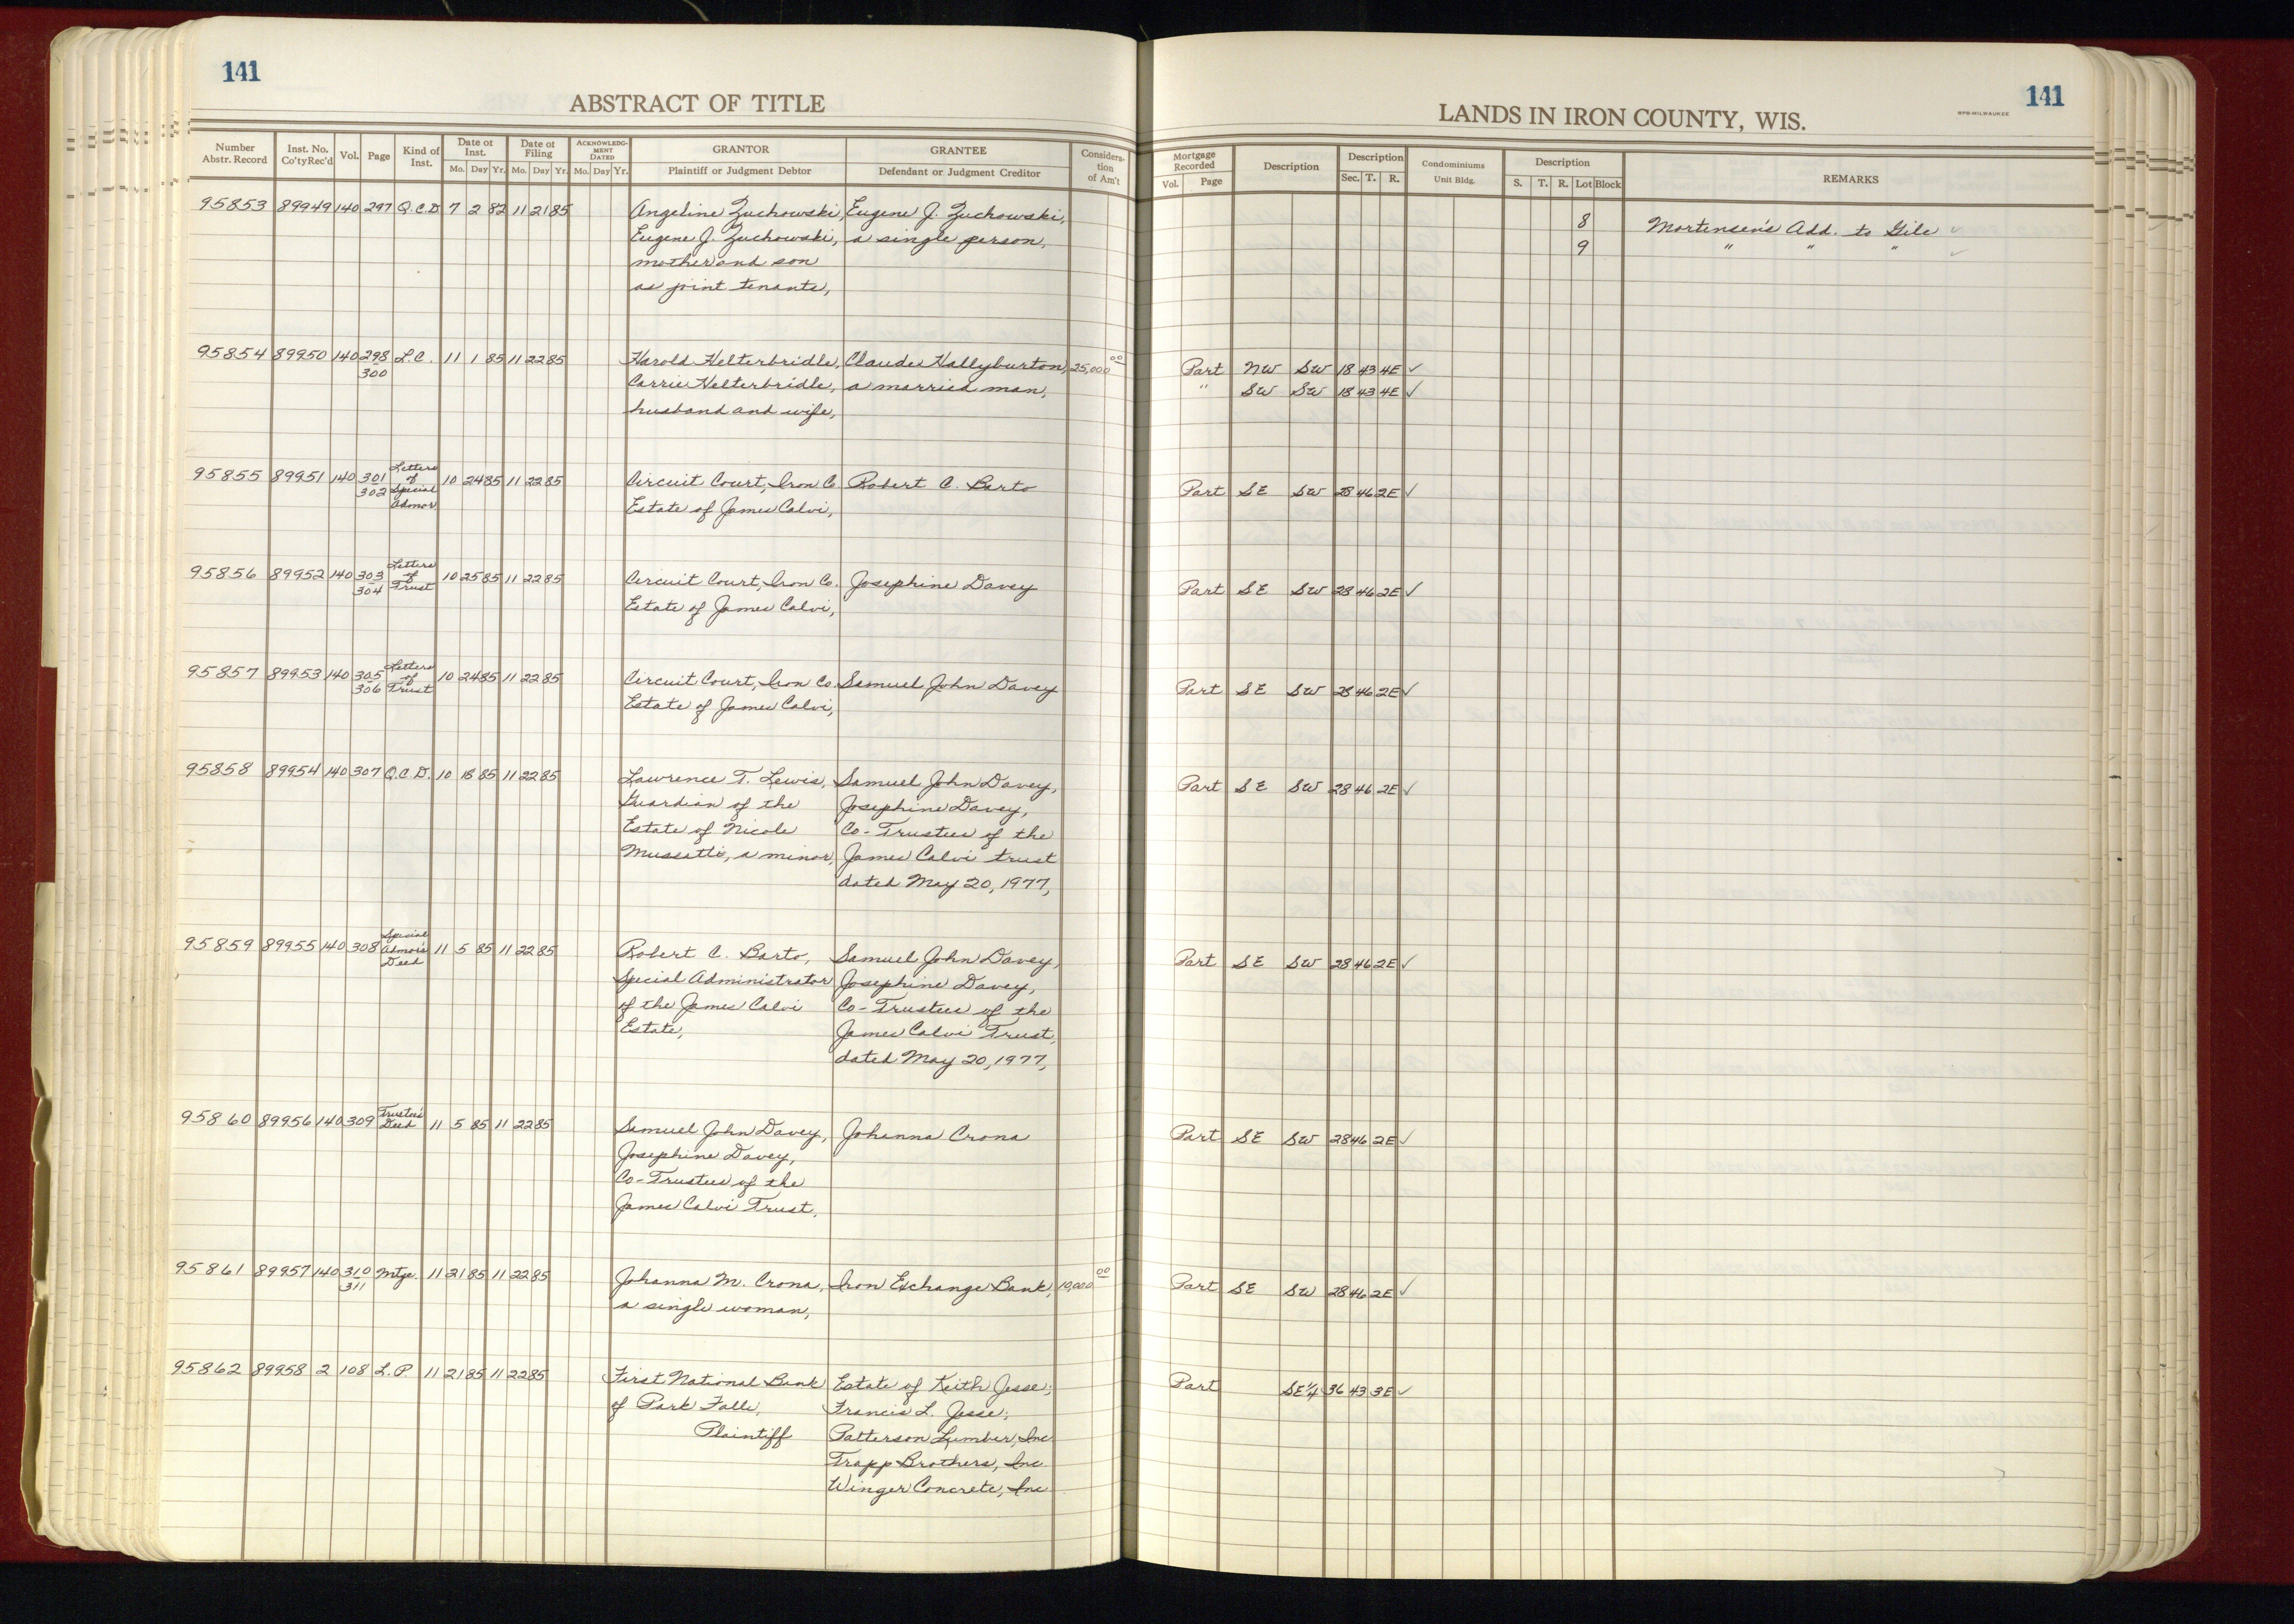 141
141
ABSTRACT OF TITLE
LANDS IN IRON COUNTY, WIS.
BPB-MILWAUKEE
Number Abstr. Record Inst. No. Co'ty Rec'd Vol. Page Kind of Inst. Date of Inst. Mo. Day Yr. Date of Filing Mo. Day Yr. ACKNOWLEDGMENT DATED Mo. Day Yr. GRANTOR Plaintiff or Judgment Debtor GRANTEE Defendant or Judgment Creditor Consideration of Am't
Mortgage Recorded Vol. Page Description Description Sec. T. R. Condominiums Unit Bldg. Description S. T. R. Lot Block REMARKS
95853 89949 140 297 Q.C.D 7 2 82 11 21 85 Angeline Zuchowski, Eugene J. Zuchowski, 8 Mortensen's Add. to Gile ✓
Eugene J. Zuchowski, a single person, 9 " " " ✓
mother and son
as joint tenants,
95854 89950 140 298 L.C. 11 1 85 11 22 85 Harold Helterbridle, Claude Hallyburton, 25,000 00 Part NW SW 18 43 4E ✓
300 Carrie Helterbridle, a married man, " SW SW 18 43 4E ✓
husband and wife,
95855 89951 140 301 302 Letters of Special Admor 10 24 85 11 22 85 Circuit Court, Iron Co Robert C. Barto Part SE SW 28 46 2E ✓
Estate of James Calvi,
95856 89952 140 303 304 Letters of Trust 10 25 85 11 22 85 Circuit Court, Iron Co. Josephine Davey Part SE SW 28 46 2E ✓
Estate of James Calvi,
95857 89953 140 305 306 Letters of Trust 10 24 85 11 22 85 Circuit Court, Iron Co. Samuel John Davey Part SE SW 28 46 2E ✓
Estate of James Calvi,
95858 89954 140 307 Q.C.D. 10 18 85 11 22 85 Lawrence T. Lewis, Samuel John Davey, Part SE SW 28 46 2E ✓
Guardian of the Josephine Davey,
Estate of Nicole Co-Trustees of the
Mussatti, a minor, James Calvi trust
dated May 20, 1977,
95859 89955 140 308 Special Admor's Deed 11 5 85 11 22 85 Robert C. Barto, Samuel John Davey, Part SE SW 28 46 2E ✓
Special Administrator Josephine Davey,
of the James Calvi Co-Trustees of the
Estate, James Calvi Trust,
dated May 20, 1977,
95860 89956 140 309 Trustee's Deed 11 5 85 11 22 85 Samuel John Davey, Johanna Crona Part SE SW 28 46 2E ✓
Josephine Davey,
Co-Trustees of the
James Calvi Trust,
95861 89957 140 310 311 Mtge. 11 21 85 11 22 85 Johanna M. Crona, Iron Exchange Bank, 10,000 00 Part SE SW 28 46 2E ✓
a single woman,
95862 89958 2 108 L.P. 11 21 85 11 22 85 First National Bank Estate of Keith Jesse; Part SE¼ 36 43 3E ✓
of Park Falls, Francis L. Jesse;
Plaintiff Patterson Lumber, Inc
Trapp Brothers, Inc
Winger Concrete, Inc